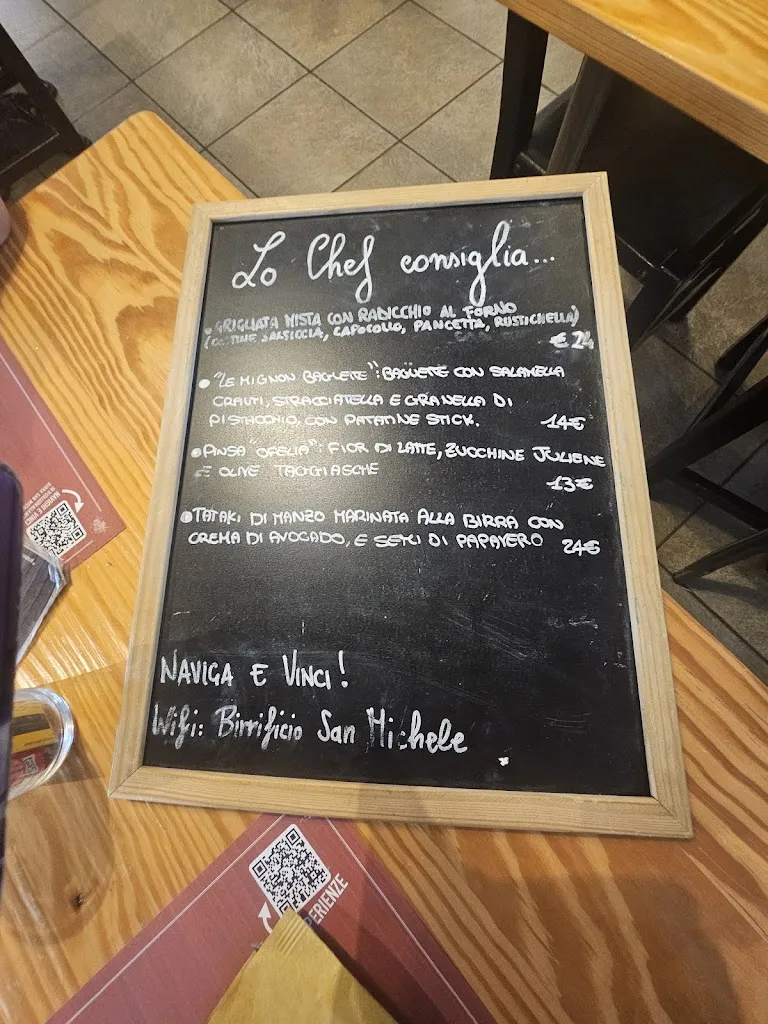 Lo Chef consiglia...
• GRIGLIATA MISTA CON RADICCHIO AL FORNO
(COSTINE SALSICCIA, CAPOCOLLO, PANCETTA, RUSTICHELLA)
€ 24
• "LE MIGNON BAGUETE": BAGUETE CON SALAMELLA
CRAUTI, STRACCIATELLA E GRANELLA DI
PISTACCHIO, CON PATATINE STICK. 14€
• PINSA "OFELIA": FIOR DI LATTE, ZUCCHINE JULIENE
E OLIVE TAGGIASCHE
13€
• TATAKI DI MANZO MARINATA ALLA BIRRA CON
CREMA DI AVOCADO, E SEMI DI PAPAVERO 24€
NAVIGA E VINCI!
Wifi: Birrificio San Michele
NAVIGA E VINCI
PERIENZE